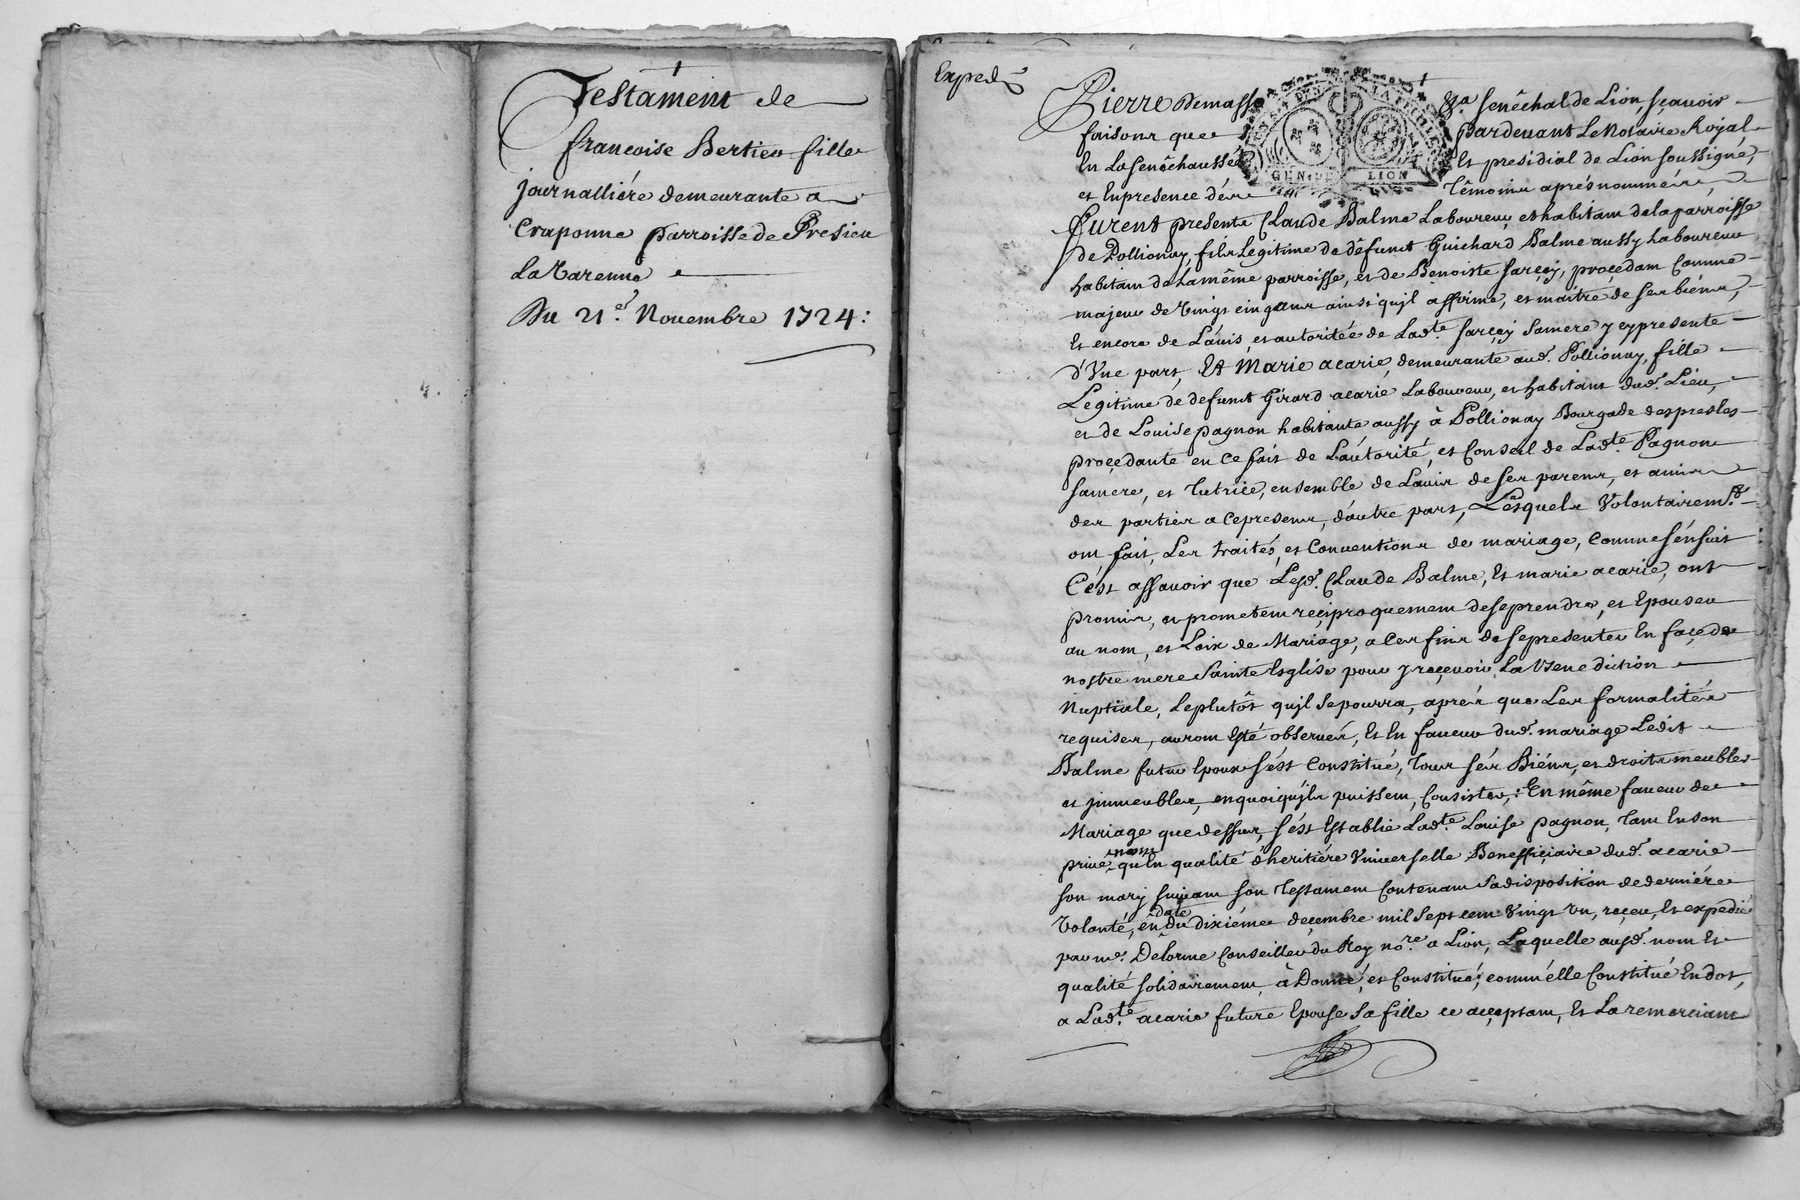 Testament de
francoise Bertieu fille
journalliére demeurante a
Craponne parroisse de Gresieu
La Varenne
Du 21e. Novembre 1724:
Exped
Pierre Demasso sénéchal de Lion, sçavoir
faisons que pardevant Le Notaire Royal
En La senéchaussée Et presidial de Lion soussigné,
et En presence dés Témoins aprés nommés,
furent presents Claude Balme Laboureur et habitant de la parroisse
de Pollionay, fils Legitime de défunt Guichard Balme aussy Laboureur
habitant de La même parroisse, et de Benoiste sarçey, procedant Comme
majeur de vingt cinq ans ainsi qu'jl affirme, et maitre de ses biéns,
Et encore de L'auis, et autoritée de Ladte. sarçey sa mere y cy presente
d'Vne part, Et Marie acarie, demeurante aud. Pollionay, fille
Legitime de defunt Girard acarie Laboureur, et habitant dud. Lieu,
et de Louise pagnon habitante aussy à Pollionay Bourgade despresles
procedante en ce fait de L'autorité, et Conseil de Ladte. Pagnon
sa mere, et tutrice, ensemble de L'auis de ses parens, et amis
des parties a ce presens, d'autre part, Lesquels Volontairemt.
ont fait, Les traités, et Conventions de mariage, Comme s'énsuit
C'ést assauoir que Lesd. Claude Balme, Et marie acarie, ont
promis, et prometent reçiproquement de se prendre, et Epouser
au nom, et Loix de Mariage, a Ces fins de se presenter En façe de
nostre mere Sainte Esglise pour y reçevoir La Bene diction
Nuptiale, Le plutôt qu'jl se pourra, aprés que Les formalités
requises, auront Esté observés, Et En faueur dud. mariage Ledit
Balme futur Epoux s'ést Constitué, tous sés Biéns, et droits meubles
et jmmeubles, en quoi qu'jls puissent, Consister,: En même faueur de
Mariage que dessus, s'ést Establie Ladte. Louise pagnon, tant En son
privé nom, qu'En qualité d'heritiére Vniverselle Benefficiaire dud. acarie
son mary suiuant son Testament Contenant sa disposition de derniére
Volonté, en date du dixiéme deçembre mil sept cent Vingt Vn, reçeu, Et expedié
par me. Delorme Conseiller du Roy nore. a Lion, Laquelle ausd. nom Et
qualité solidairement, à Donné, et Constitué, comm'elle Constitué En dot,
a Ladte. acarie future Epouse sa fille ce acçeptant, Et La remerciant
GEN. DE LION